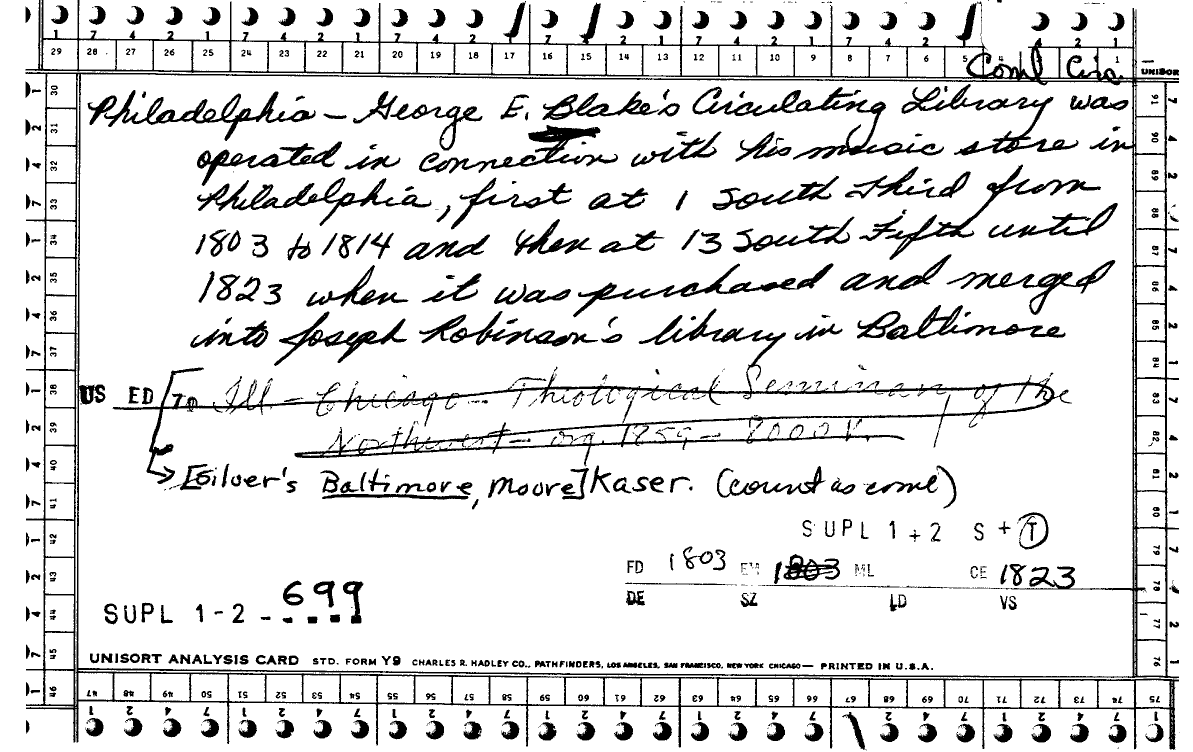 1 7 4 2 1 7 4 2 1 7 4 2 1 7 4 2 1 7 4 2 1 7 4 2 1
29 28 27 26 25 24 23 22 21 20 19 18 17 16 15 14 13 12 11 10 9 8 7 6 5
Coml Circ
UNISOR
Philadelphia - George E. Blake's Circulating Library was
operated in connection with his music store in
Philadelphia, first at 1 South Third from
1803 to 1814 and then at 13 South Fifth until
1823 when it was purchased and merged
into Joseph Robinson's library in Baltimore
US ED [TO Ill - Chicago - Theological Seminary of the
Northwest - org. 1859 - 8000 V.
[Silver's Baltimore, Moore] Kaser. (count as coml)
SUPL 1 + 2 S + T
FD 1803 EM 1803 ML CE 1823
DE SZ LD VS
SUPL 1-2 - 699
UNISORT ANALYSIS CARD STD. FORM Y9 CHARLES R. HADLEY CO., PATHFINDERS, LOS ANGELES, SAN FRANCISCO, NEW YORK CHICAGO — PRINTED IN U.S.A.
47 48 49 50 51 52 53 54 55 56 57 58 59 60 61 62 63 64 65 66 67 68 69 70 71 72 73 74 75